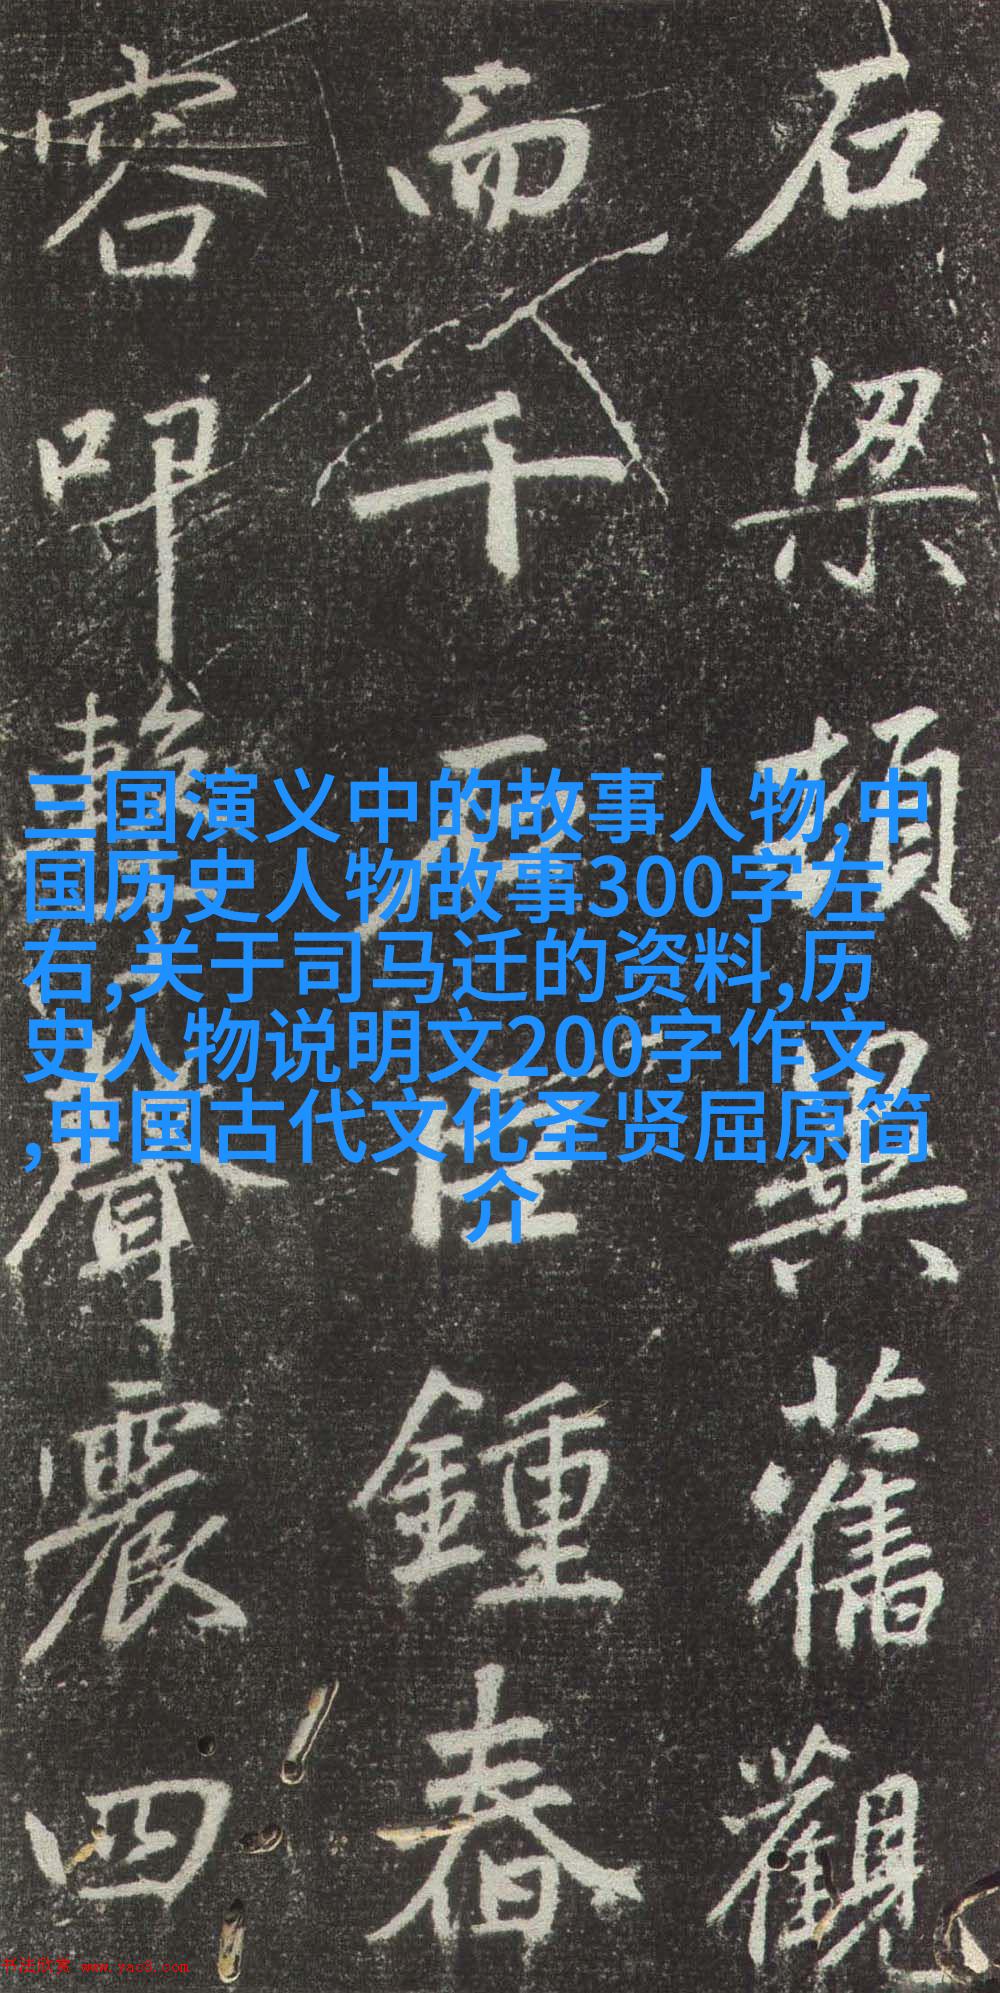 石梁頓舊觀
而千石鍾舂
容叩聲震四
三国演义中的故事人物,中
国历史人物故事300字左
右,关于司马迁的资料,历
史人物说明文200字作文
,中国古代文化圣贤屈原简
介
书法欣赏 www.yac8.com